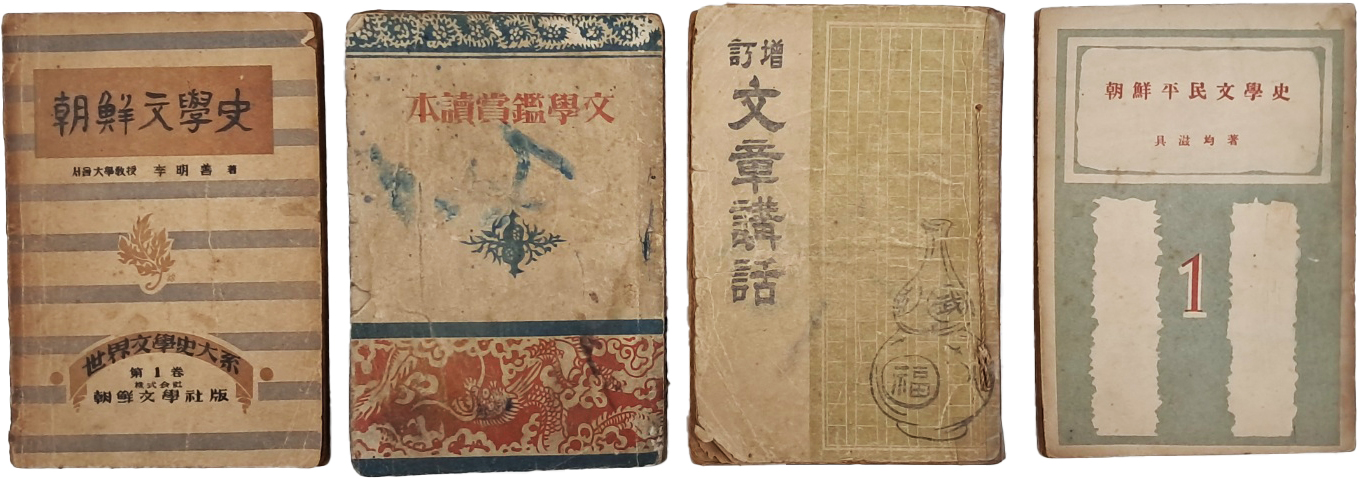 朝鮮文學史
서울大學敎授 李明善 著
世界文學史大系
第1卷
株式会社
朝鮮文學社版
文學鑑賞讀本
增訂
文章講話
福
朝鮮平民文學史
具滋均著
1